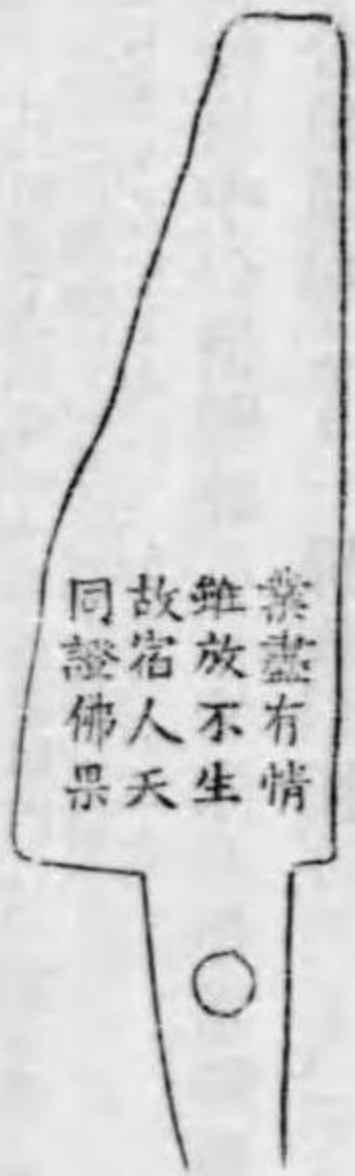 業盡有情
雖放不生
故宿人天
同證佛果